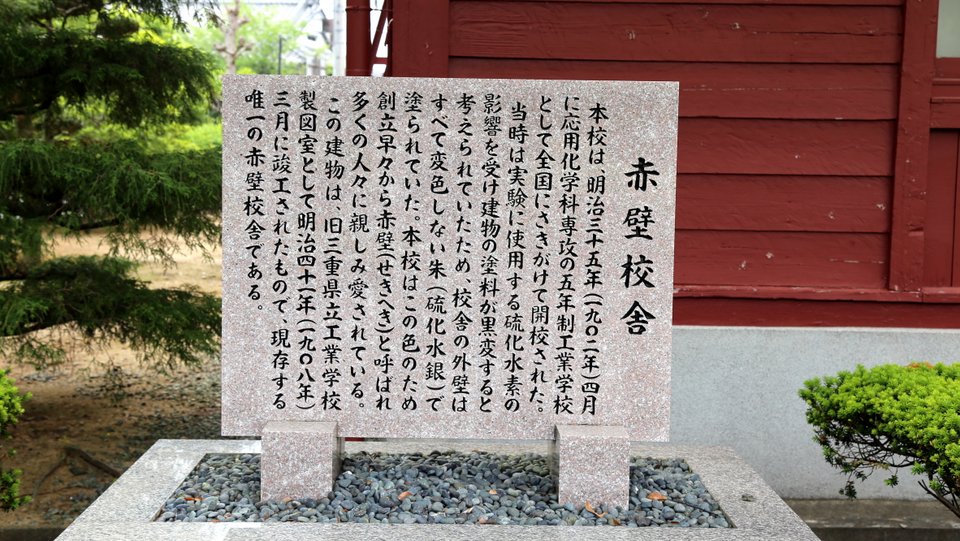 赤壁校舎
本校は、明治三十五年(一九〇二年)四月
に応用化学科専攻の五年制工業学校
として全国にさきがけて開校された。
当時は実験に使用する硫化水素の
影響を受け建物の塗料が黒変すると
考えられていたため、校舎の外壁は
すべて変色しない朱(硫化水銀)で
塗られていた。本校はこの色のため
創立早々から赤壁(せきへき)と呼ばれ
多くの人々に親しみ愛されている。
この建物は、旧三重県立工業学校
製図室として明治四十一年(一九〇八年)
三月に竣工されたもので、現存する
唯一の赤壁校舎である。